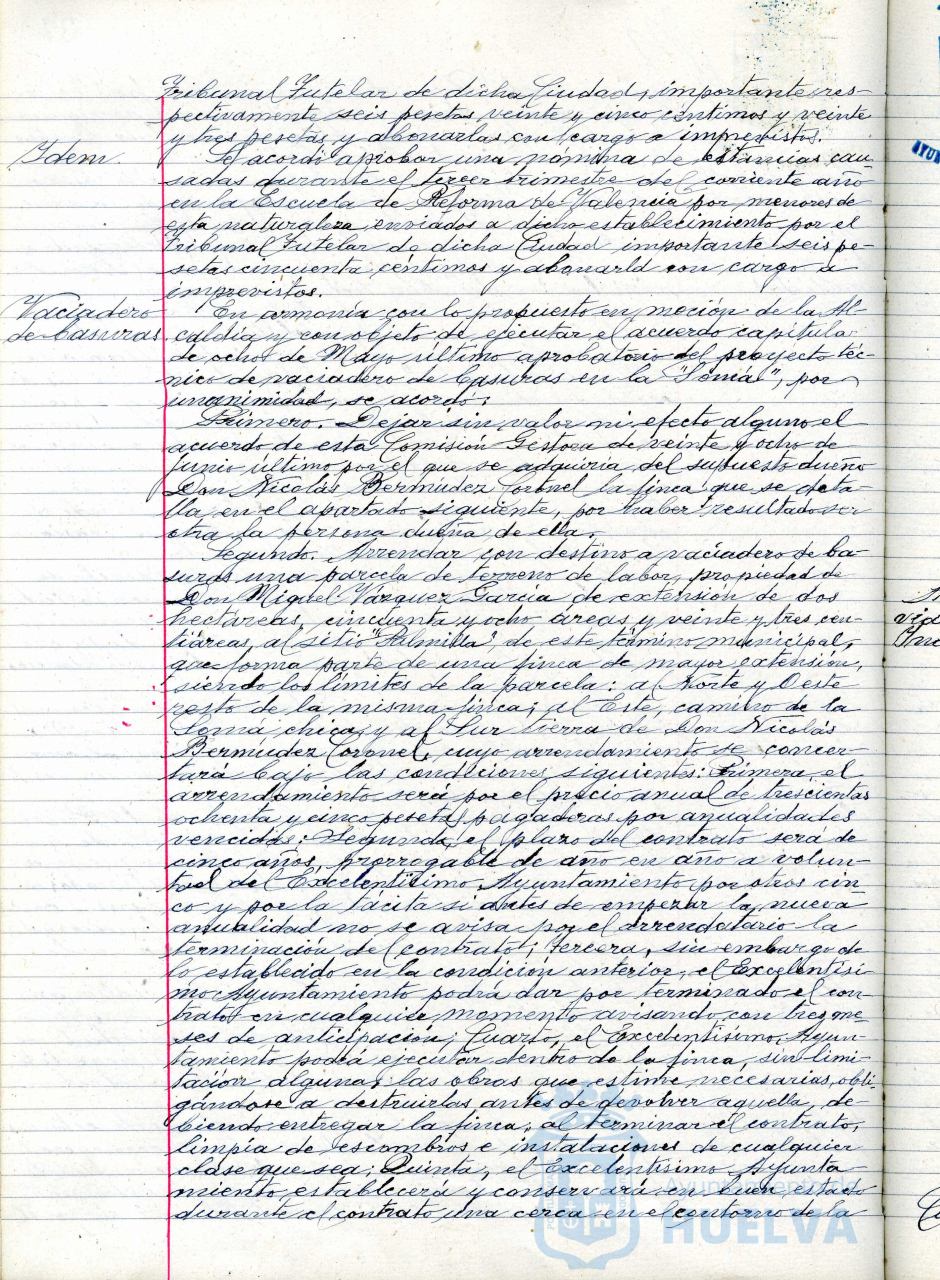 Tribunal Tutelar de dicha Ciudad, importantes res-
pectivamente seis pesetas veinte y cinco céntimos y veinte
y tres pesetas y abonarlas con cargo a imprevistos.
Idem
Se acordó aprobar una nómina de estancias cau-
sadas durante el tercer trimestre del corriente año
en la Escuela de Reforma de Valencia por menores de
esta naturaleza enviados a dicho establecimiento por el
Tribunal Tutelar de dicha Ciudad importante seis pe-
setas cincuenta céntimos y abonarla con cargo a
imprevistos.
Vaciadero
de basuras.
En armonía con lo propuesto en moción de la Al-
caldía y con objeto de ejecutar el acuerdo capitular
de ocho de Mayo último aprobatorio del proyecto téc-
nico de vaciadero de basuras en la "Somá", por
unanimidad, se acordó:
Primero. Dejar sin valor ni efecto alguno el
acuerdo de esta Comisión Gestora de veinte y ocho de
Junio último por el que se adquiría del supuesto dueño
Don Nicolás Bermúdez Coronel la finca que se deta-
lla en el apartado siguiente, por haber resultado ser
otra la persona dueña de ella.
Segundo. Arrendar con destino a vaciadero de ba-
suras una parcela de terreno de labor, propiedad de
Don Miguel Vázquez García de extensión de dos
hectáreas, cincuenta y ocho áreas y veinte y tres cen-
tiáreas, al sitio de este término municipal,
que forma parte de una finca de mayor extensión,
siendo los límites de la parcela: al Norte y Oeste
resto de la misma finca; al Este, camino de la
Somá chica, y al Sur tierra de Don Nicolás
Bermúdez Coronel, cuyo arrendamiento se concer-
tará bajo las condiciones siguientes: Primera, el
arrendamiento será por el precio anual de trescientas
ochenta y cinco pesetas pagaderas por anualidades
vencidas; Segunda, el plazo del contrato será de
cinco años, prorrogable de año en año a volun-
tad del Excelentísimo Ayuntamiento por otros cin-
co y por la tácita si antes de empezar la nueva
anualidad no se avisa por el arrendatario la
terminación del contrato; Tercera, sin embargo de
lo establecido en la condición anterior, el Excelentísi-
mo Ayuntamiento podrá dar por terminado el con-
trato en cualquier momento avisando con tres me-
ses de anticipación; Cuarto, el Excelentísimo Ayun-
tamiento podrá ejecutar dentro de la finca, sin limi-
tación alguna, las obras que estime necesarias, obli-
gándose a destruirlas antes de devolver aquella, de-
biendo entregar la finca, al terminar el contrato,
limpia de escombros e instalaciones de cualquier
clase que sea; Quinta, el Excelentísimo Ayunta-
miento establecerá y conservará en buen estado
durante el contrato una cerca en el contorno de la
Ayuntamiento de
HUELVA